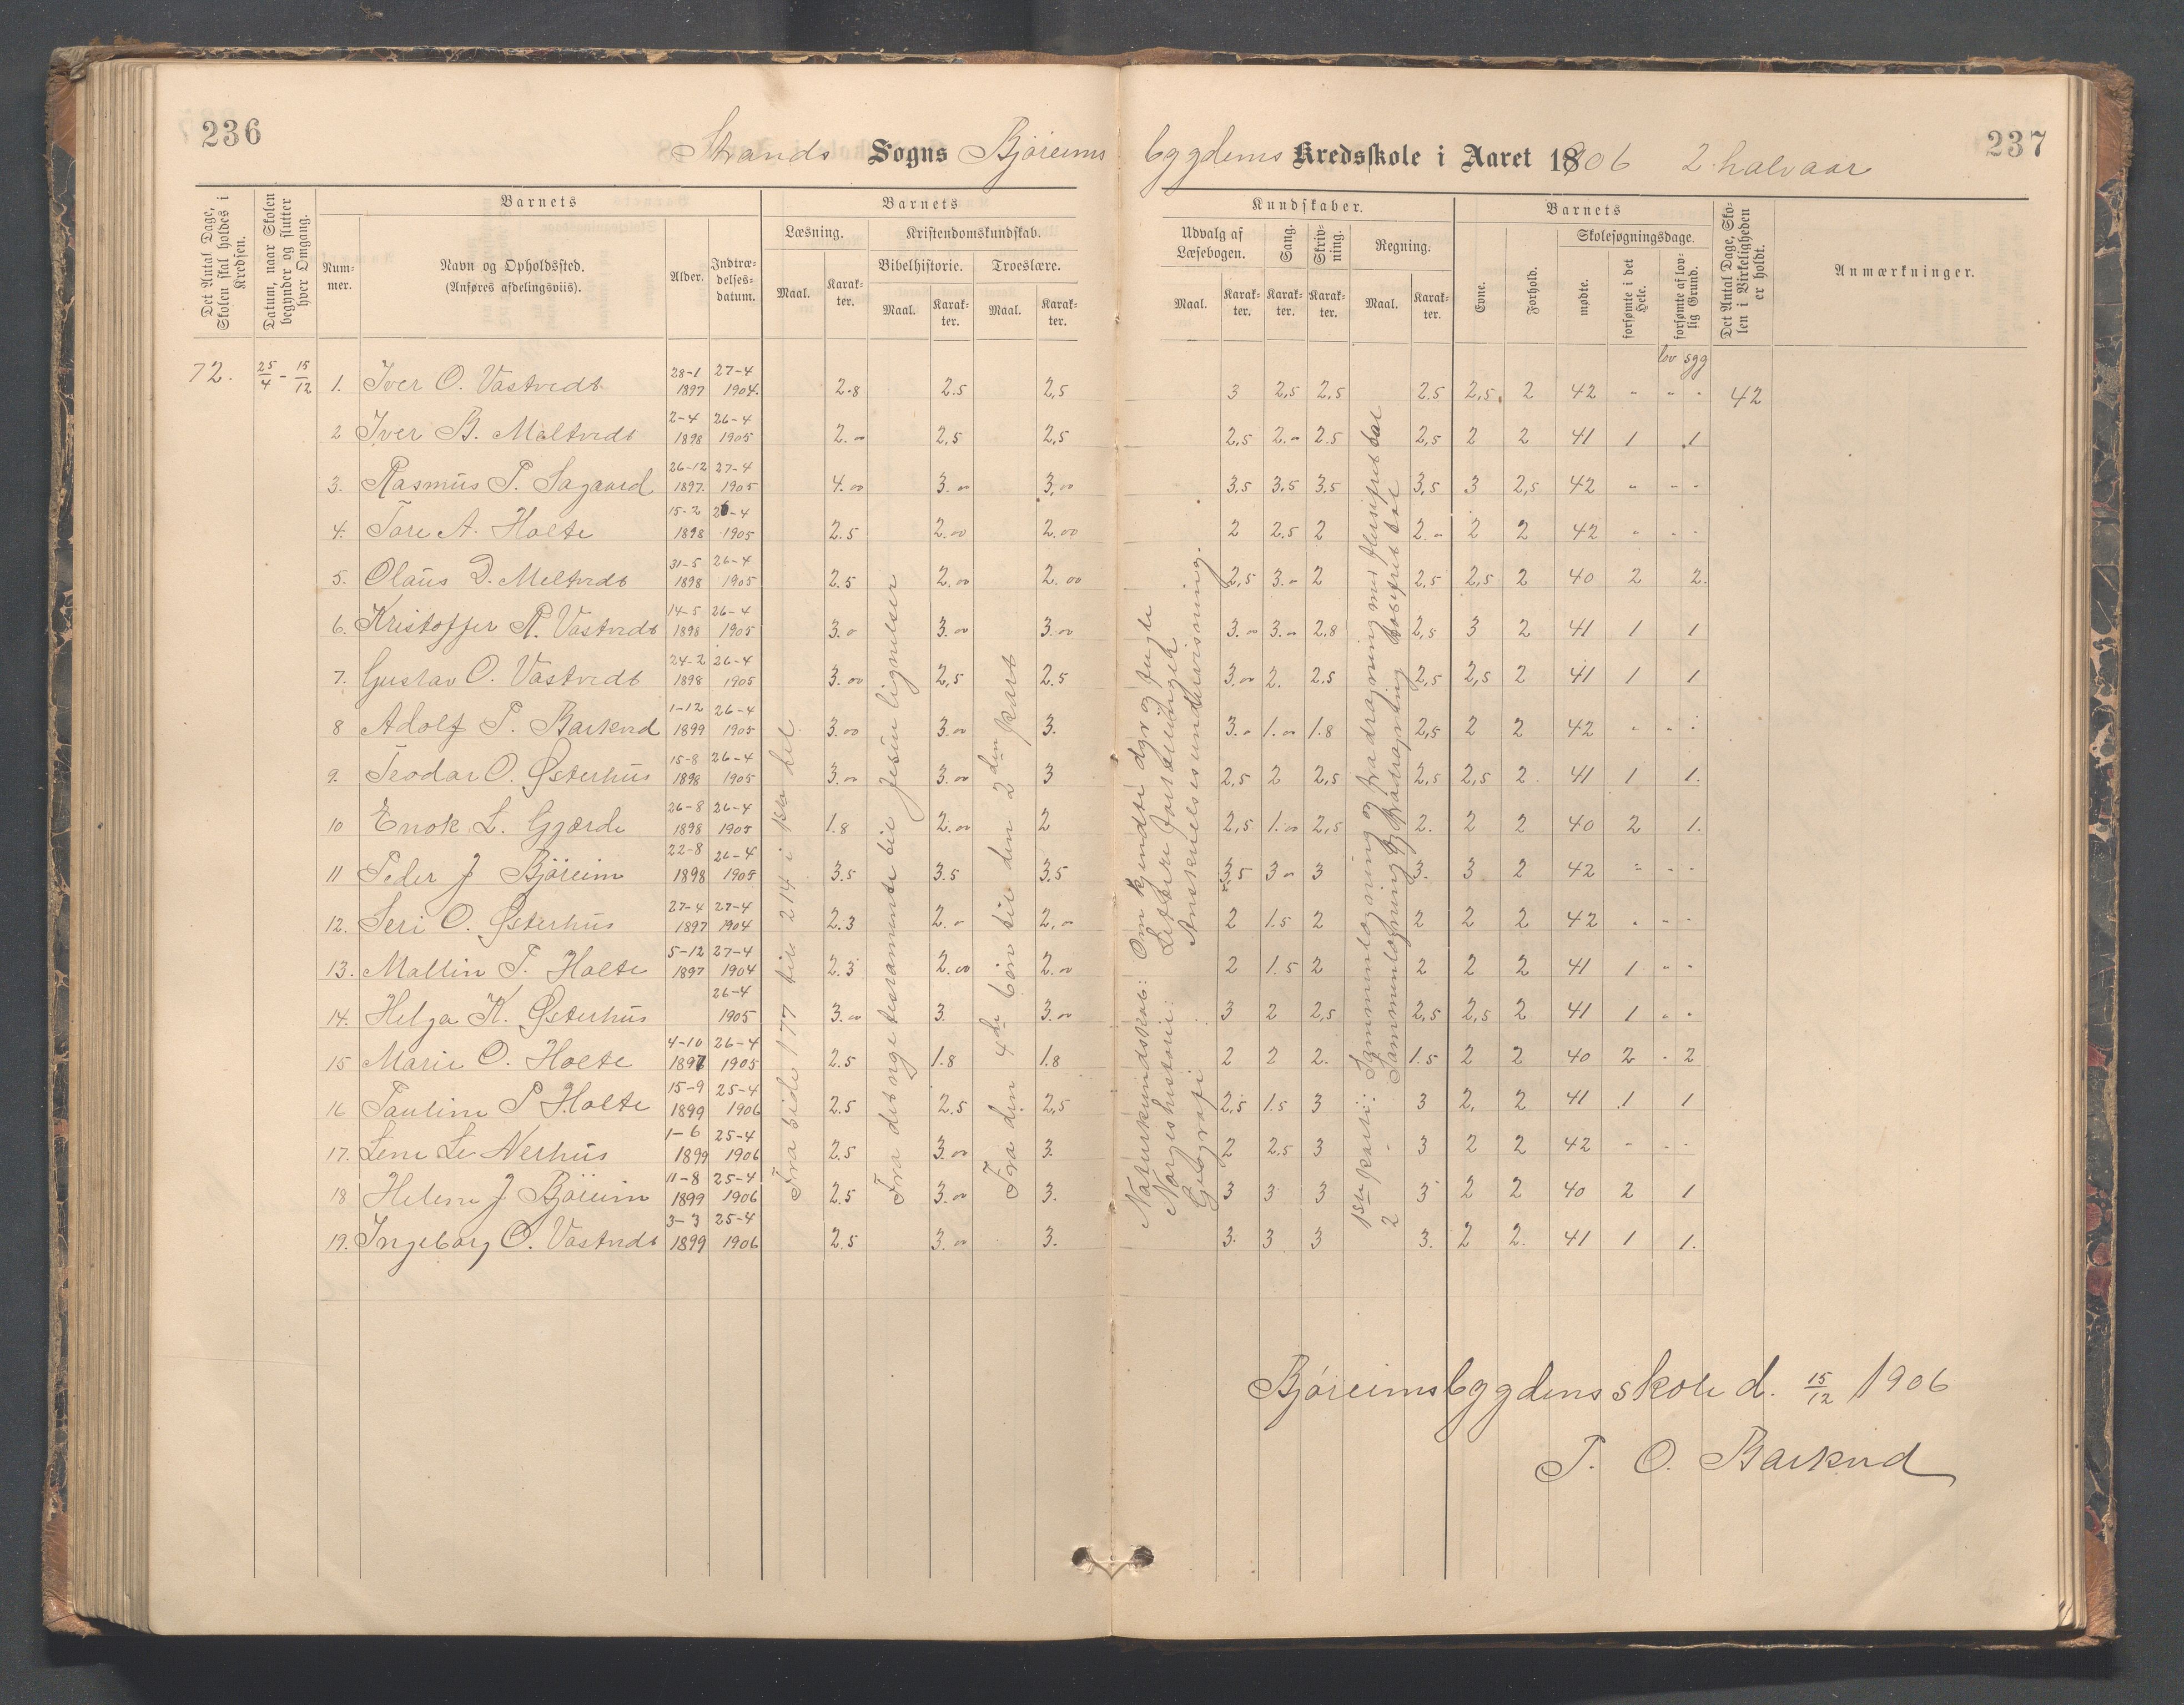 236
Strands Sogns Björeims
bygdens Kredsskole i Aaret 1906 2. halvaar
237
Det Antal Dage, Skolen skal holdes i Kredsen.
Datum, naar Skolen begynder og slutter hver Omgang.
Barnets
Num-mer.
Navn og Opholdssted.
(Anføres afdelingsviis).
Alder.
Indtræ-delses-datum.
Barnets
Læsning.
Maal.
Karak-ter.
Kristendomskundskab.
Bibelhistorie.
Maal.
Karak-ter.
Troeslære.
Maal.
Karak-ter.
Kundskaber.
Udvalg af Læsebogen.
Maal.
Karak-ter.
Sang.
Karak-ter.
Skriv-ning.
Karak-ter.
Regning.
Maal.
Karak-ter.
Barnets
Evne.
Forhold.
Skolesøgningsdage.
mødte.
forsømte i det Hele.
forsømte af lov-lig Grund.
Det Antal Dage, Sko-len i Virkeligheden er holdt.
Anmærkninger.
lov sgg
72. 25/4 - 15/12 1. Iver O. Vastvedt 28-1 1897 27-4 1904. 2.8 2.5 2,5 3 2,5 2,5 2.5 2,5. 2 42 " " " 42
2 Iver B. Meltvedt 2-4 1898 26-4 1905 2.00 2,5 2,5 2,5 2.00 2.5 2,5 2 2 41 1 1
3. Rasmus P. Sagaard 26-12 1897. 27-4 1905 4.00 3.00 3,00 3,5 3,5 3,5 3,5 3 2,5 42 " " "
4. Tore A. Holte 15-2 1898 26-4 1905 2.5 2.00 2.00 2 2.5 2 2.00 2 2 42 " " "
5. Olaus D. Meltvedt 31-5 1898 26-4 1905 2.5 2.00 2.00 2,5 3.00 2 2,5 2,5 2 40 2 2.
6. Kristoffer R. Vastvedt 14-5 1898 26-4 1905 3.0 3.00 3.00 3.00 3.00 2.8 2,5 3 2 41 1 1
7. Gustav O. Vastvedt 24-2 1898 26-4 1905 3.00 2,5 2.5 3.00 2. 2.5 2,5 2,5 2 41 1 1
8 Adolf P. Barkved 1-12 1899 26-4 1905 3.00 3.00 3. 3.0 1.00 1.8 2,5 2 2 42 " " "
9. Teodor O. Østerhus 15-8 1898 26-4 1905 3.00 3.00 3 2,5 2 2,5 2,5 2,5 2 41 1 1.
10 Enok L. Gjærde 26-8 1898 26-4 1905 1.8 2.00 2 2,5 1.00 2,5 2. 2 2 40 2 1.
11 Peder J Björeim 22-8 1898 26-4 1905 3.5 3.5 3.5 3,5 3 00 3 3. 3 2 42 " " "
12. Seri O. Østerhus 27-4 1897 27-4 1904 2.3 2.0 2,00 2 1.5 2 2 2 2 42 " " "
13. Mallin T. Holte 5-12 1897 27-4 1904 2.3 2.00 2.00 2 1.5 2 2 2 2 41 1 " "
14. Helga K. Østerhus 26-4 1905 3.00 3. 3.00 3 2 2,5 2,5 2,5 2 41 1 " "
15 Marie O. Holte 4-10 1897 26-4 1905 2.5 1.8 1.8 2 2 2. 1.5 2 2 40 2 " 2
16 Pauline P Holte 15-9 1899 25-4 1906 2.5 2.5 2,5 2,5 1.5 3 3 2, 2 41 1 1
17. Lene Le Nerhus 1-6 1899 25-4 1906 2.5 3.00 3. 2 2.5 3 3 2 2 42 " " "
18 Helene J Björeim 11-8 1899 25-4 1906 2.5 3.00 3. 3 3 3 3 2 2 40 2 1
19. Ingeborg O. Vastvedt 3-3 1899 25-4 1906 2.5 3.00 3. 3. 3 3 3. 2 2. 41 1 1.
Fra side 177 til 214 i 1ste del
Fra det nye testamente til Jesu lignelser
Fra den 4de bön til den 2den part
Naturkundskab: Om kjendte dyr og fugle
Norgeshistorie: Lettere fortællinger
Geografi : Anskuelsesundervisning.
1ste parti: Sammenlægning og fradragning med flersifret tal
2 - Sammenlægning og fradragning tosifret tal
Björeimsbygdens skole d. 15/12 1906
P. O. Barkved